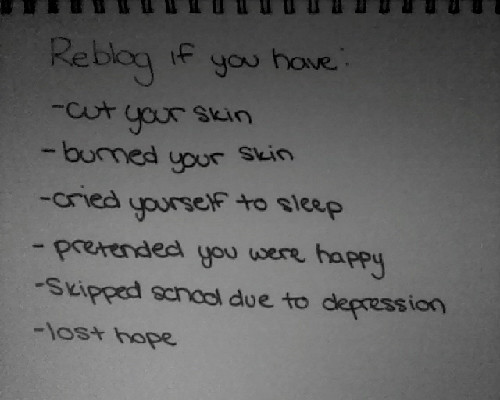 Reblog if you have:
-cut your skin
-burned your skin
-cried yourself to sleep
- pretended you were happy
-Skipped school due to depression
-lost hope